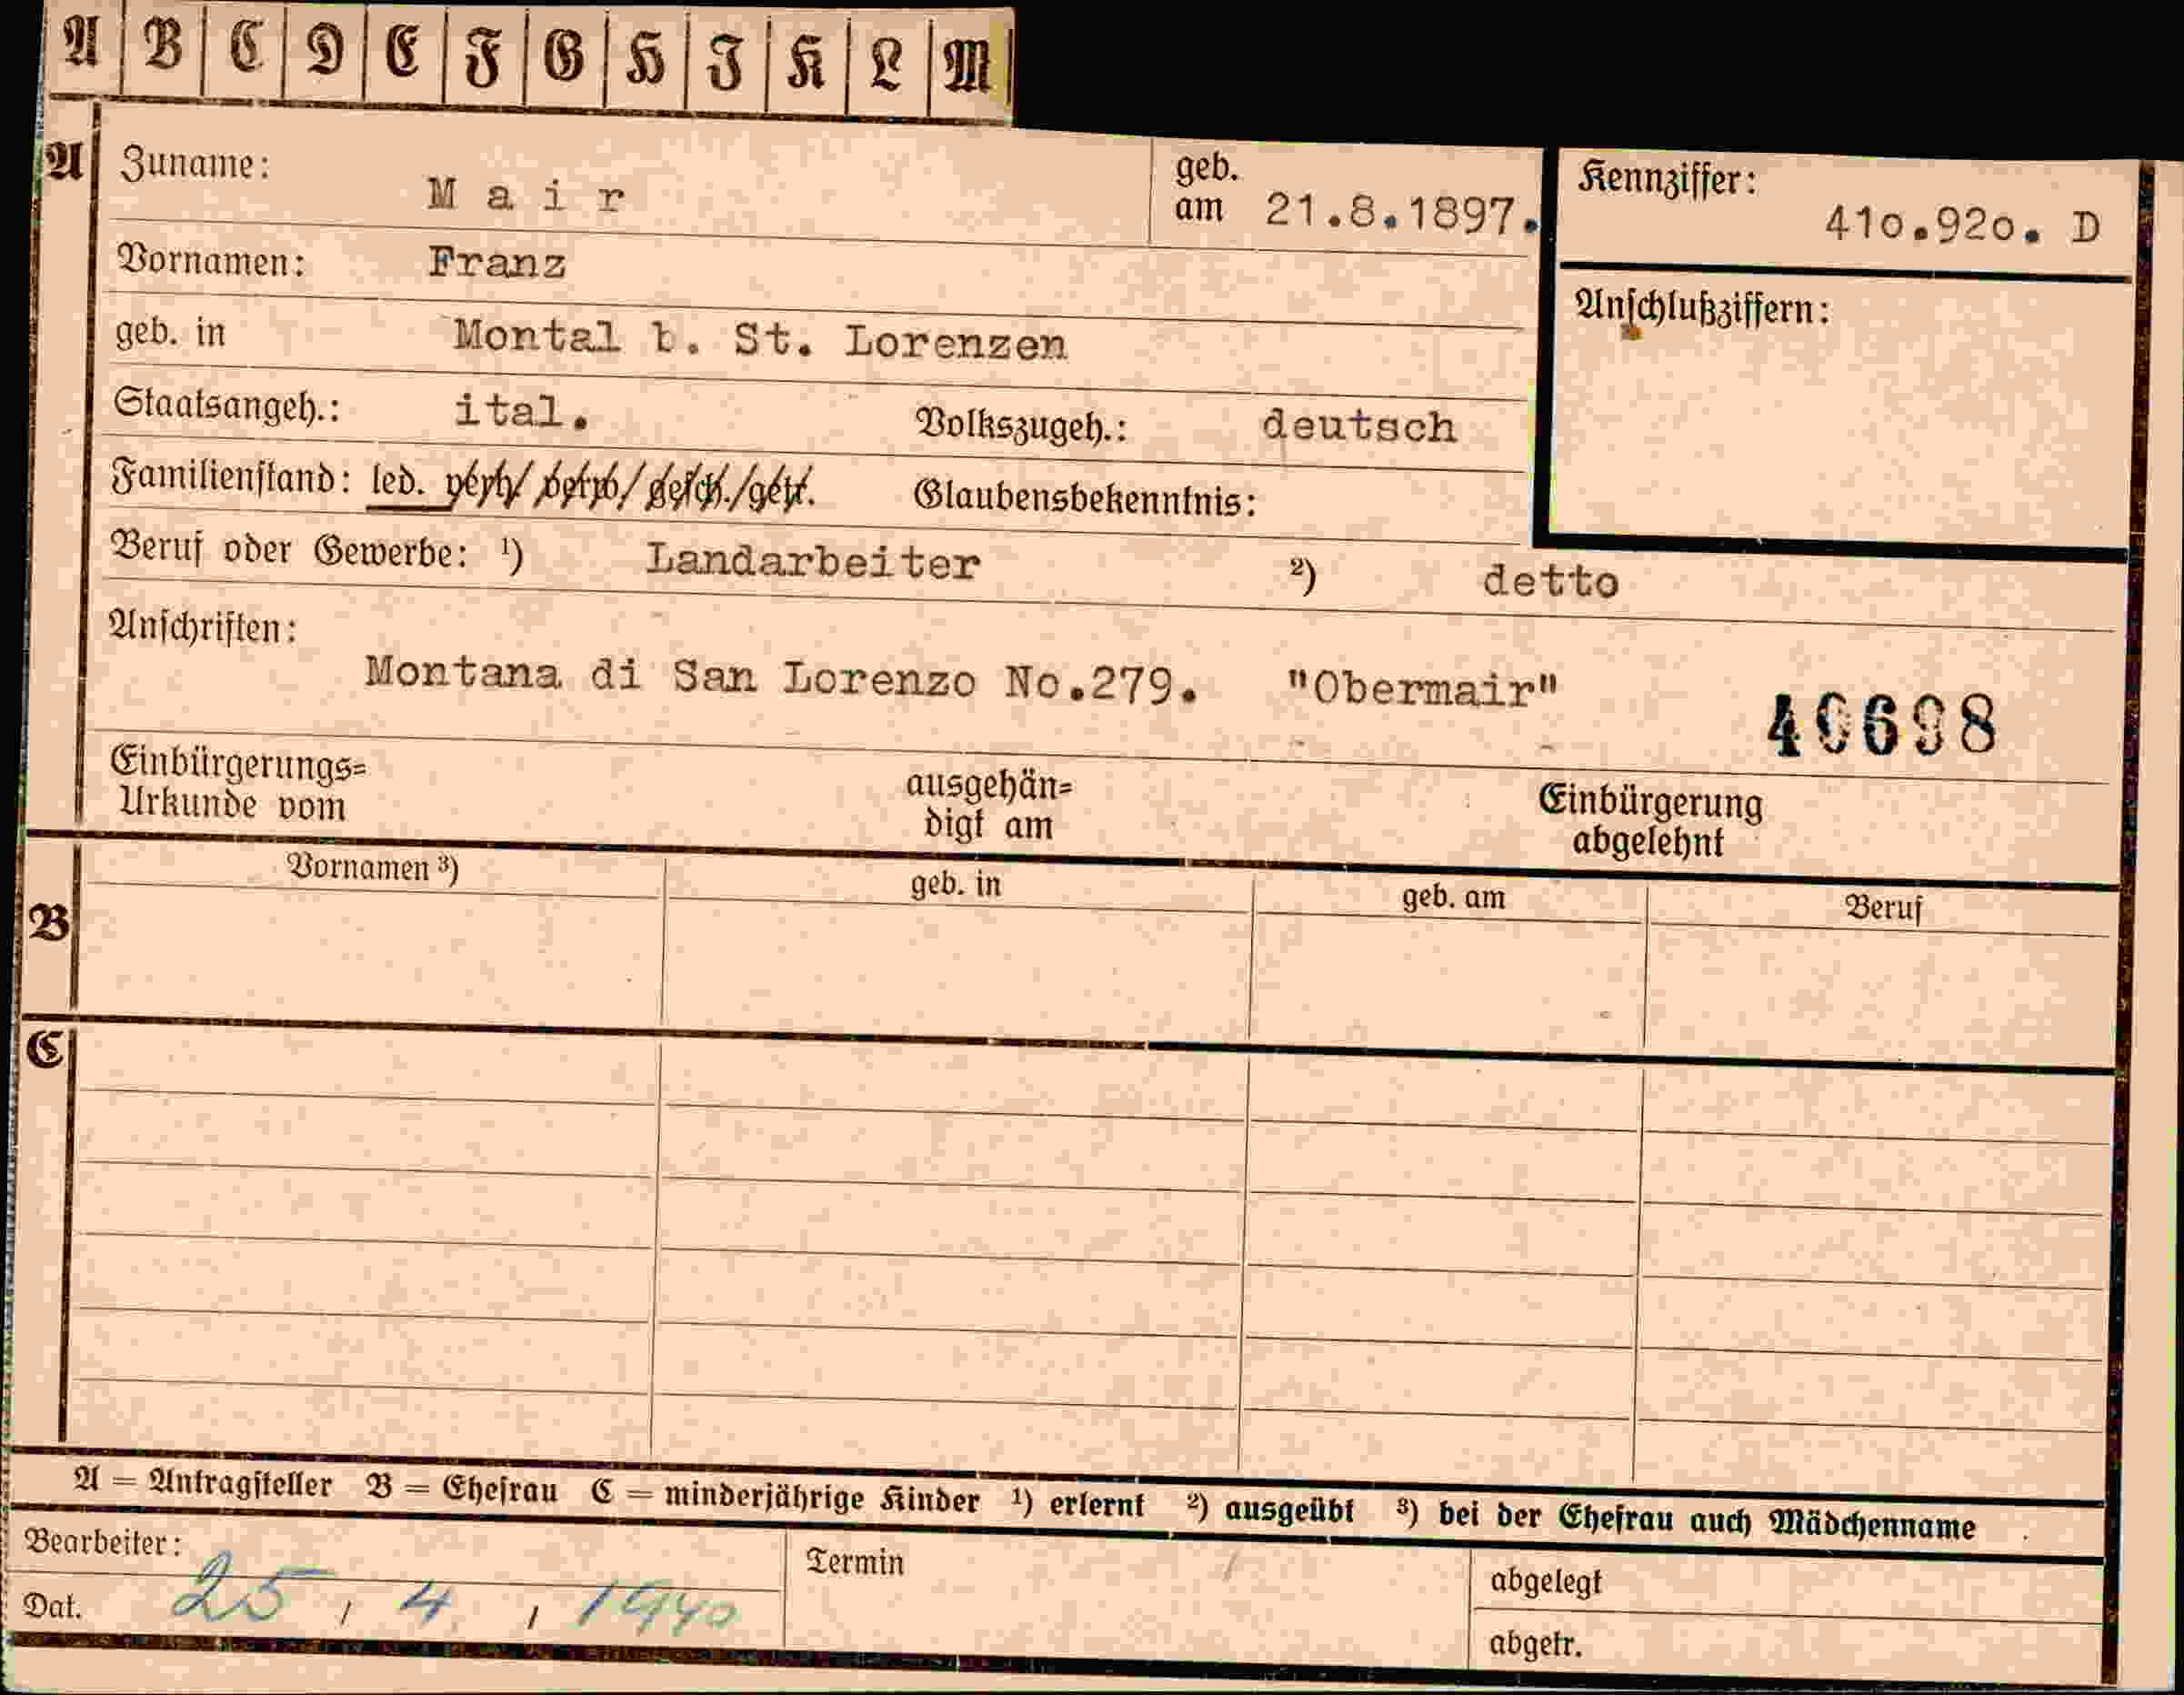 A B C D E F G H I K L M
A Zuname: Mair geb. am 21.8.1897. Kennziffer: 41o.92o. D
Vornamen: Franz
Anschlußziffern:
geb. in Montal b. St. Lorenzen
Staatsangeh.: ital. Volkszugeh.: deutsch
Familienstand: led. verh/ verw/ gesch./getr. Glaubensbekenntnis:
Beruf oder Gewerbe: ¹) Landarbeiter ²) detto
Anschriften:
Montana di San Lorenzo No.279. "Obermair" 40698
Einbürgerungs=
Urkunde vom
ausgehän=
digt am
Einbürgerung
abgelehnt
B Vornamen ³) geb. in geb. am Beruf
C
A = Antragsteller B = Ehefrau C = minderjährige Kinder ¹) erlernt ²) ausgeübt ³) bei der Ehefrau auch Mädchenname
Bearbeiter: Termin abgelegt
Dat. 25, 4, 1940 abgetr.